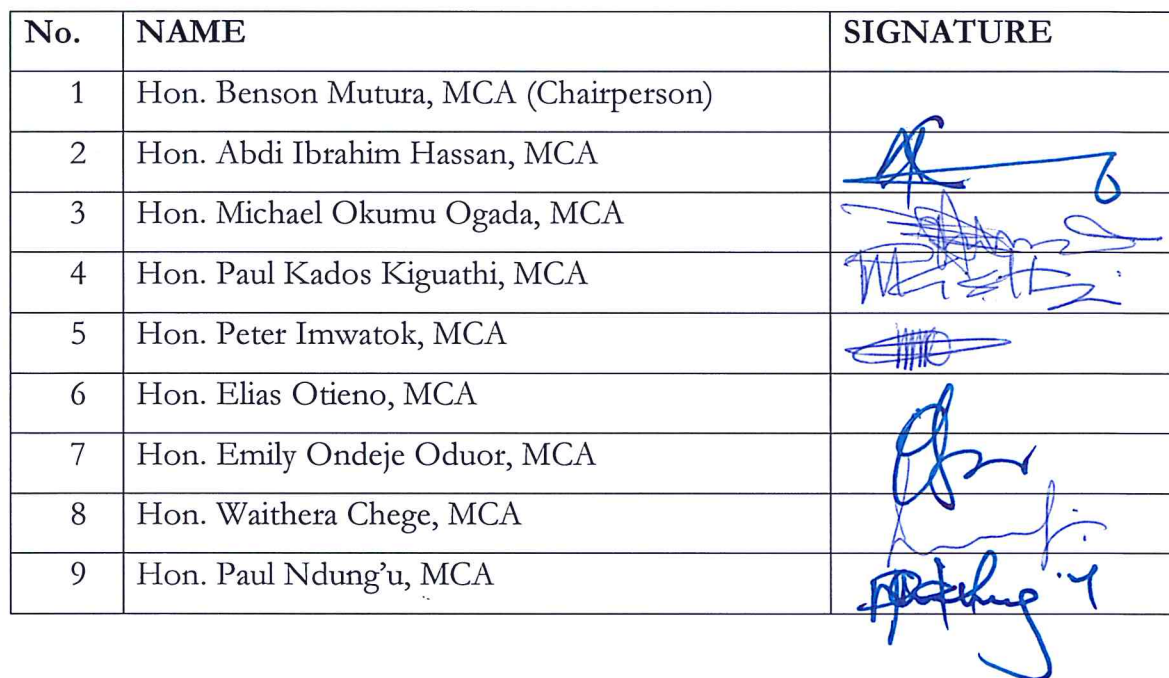 No. NAME SIGNATURE
1 Hon. Benson Mutura, MCA (Chairperson)
2 Hon. Abdi Ibrahim Hassan, MCA
3 Hon. Michael Okumu Ogada, MCA
4 Hon. Paul Kados Kiguathi, MCA
5 Hon. Peter Imwatok, MCA
6 Hon. Elias Otieno, MCA
7 Hon. Emily Ondeje Oduor, MCA
8 Hon. Waithera Chege, MCA
9 Hon. Paul Ndung’u, MCA